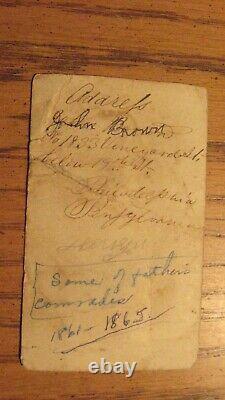 Address
John Brown
No 1833 Vineyard St.
below 19th St.
Philadelphia
Pensylvania
Some of father's
comrades
1861-1865.